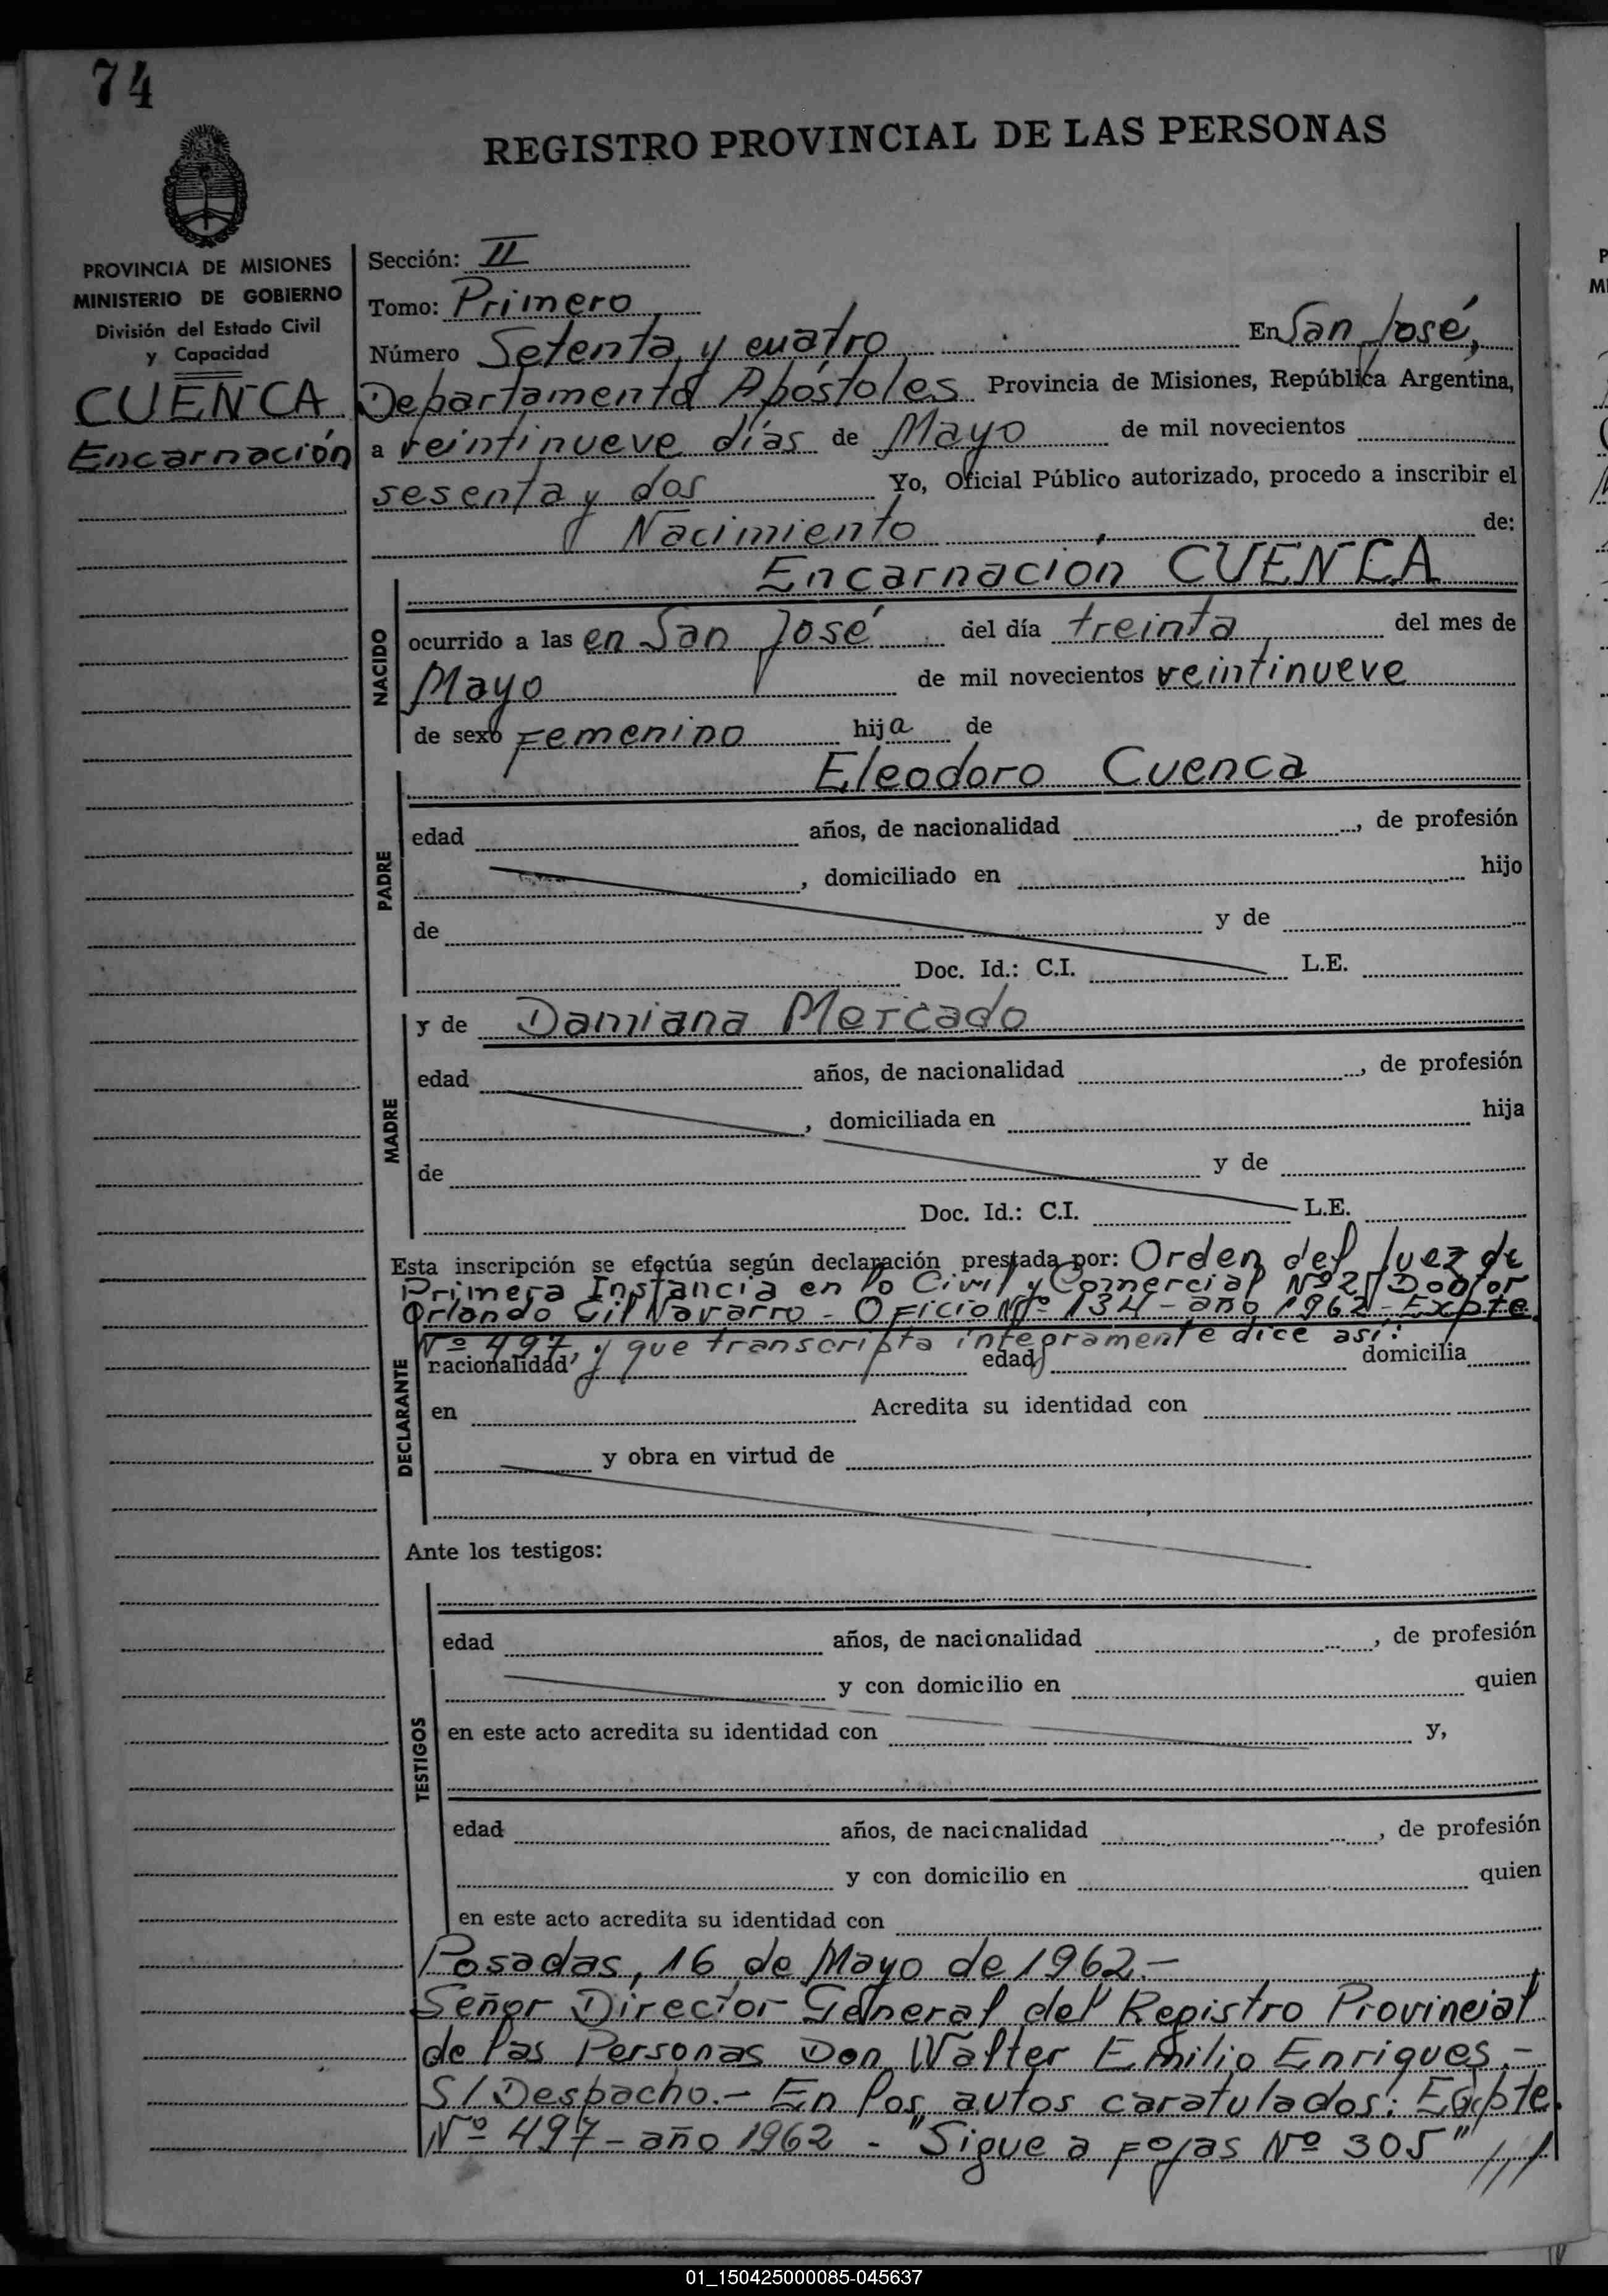 74
REGISTRO PROVINCIAL DE LAS PERSONAS
PROVINCIA DE MISIONES
MINISTERIO DE GOBIERNO
División del Estado Civil
y Capacidad
CUENCA
Encarnación
Sección: II
Tomo: Primero
Número Setenta y cuatro En San José,
Departamento Apóstoles Provincia de Misiones, República Argentina,
a veintinueve días de Mayo de mil novecientos
sesenta y dos Yo, Oficial Público autorizado, procedo a inscribir el
Nacimiento de:
Encarnación CUENCA
NACIDO
ocurrido a las en San José del día treinta del mes de
Mayo de mil novecientos veintinueve
de sexo Femenino hija de
Eleodoro Cuenca
PADRE
edad años, de nacionalidad , de profesión
, domiciliado en hijo
de y de
Doc. Id.: C.I. L.E.
y de Damiana Mercado
MADRE
edad años, de nacionalidad , de profesión
, domiciliada en hija
de y de
Doc. Id.: C.I. L.E.
Esta inscripción se efectúa según declaración prestada por: Orden del Juez de
Primera Instancia en lo Civil y Comercial Nº 2, Doctor
Orlando Gil Navarro - Oficio Nº 134 - año 1962 - Expte
Nº 497, y que transcripta íntegramente dice así:
DECLARANTE
nacionalidad edad domicilia
en Acredita su identidad con
y obra en virtud de
Ante los testigos:
TESTIGOS
edad años, de nacionalidad , de profesión
y con domicilio en quien
en este acto acredita su identidad con y,
edad años, de nacionalidad , de profesión
y con domicilio en quien
en este acto acredita su identidad con
Posadas, 16 de Mayo de 1962.-
Señor Director General del Registro Provincial
de las Personas Don Walter Emilio Enriques.-
S/Despacho.- En los autos caratulados: Expte.
Nº 497 - año 1962 - "Sigue a fojas Nº 305" ///
01_150425000085-045637